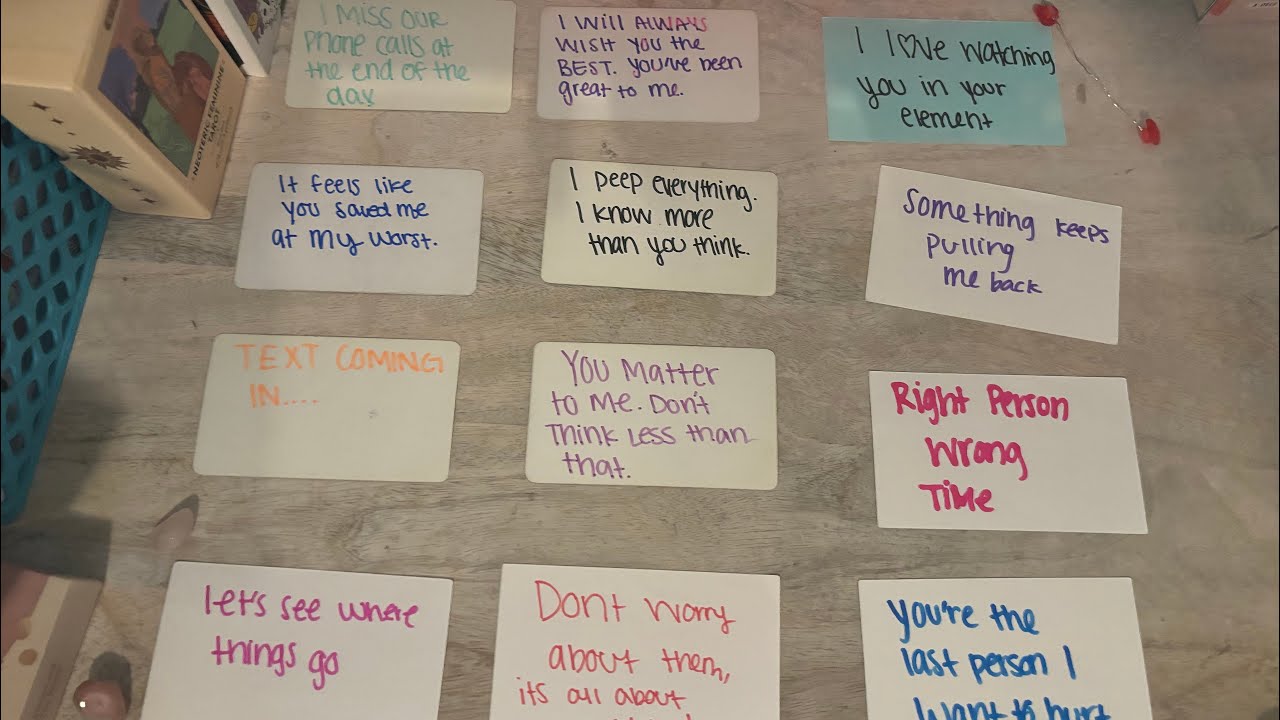 I MISS OUR
phone calls at
the end of the
day
I Will ALWAYS
WISH YOU the
BEST. YOU'VE been
great to me.
I l♡ve watching
you in your
element
NEOTERIC FEMININE
TAROT
It feels like
you saved me
at my worst.
I peep everything.
I know more
than you think.
Something keeps
pulling
me back
TEXT COMING
IN....
You Matter
to Me. Don't
Think Less than
that.
Right Person
Wrong
Time
let's see where
things go
Dont worry
about them,
its all about
you're the
last person I
want to hurt